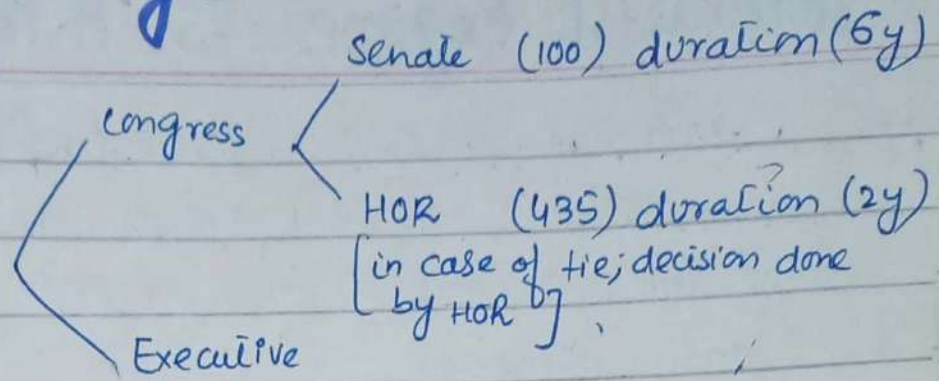 Senate (100) duration (6y)
Congress
HOR (435) duration (2y)
[in case of tie; decision done
by HOR].
Executive